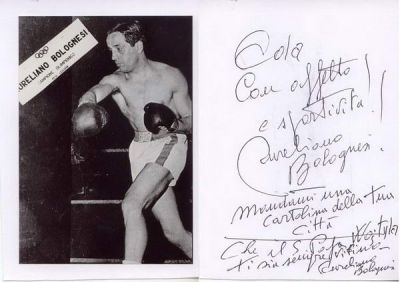 AURELIANO BOLOGNESI
CAMPIONE OLIMPIONICO
Cola
Con affetto
e sportività!
Aureliano
Bolognesi
Mandami una
cartolina della tua
città
Che il S. Wojtyla
ti sia sempre vicino
Aureliano
Bolognesi